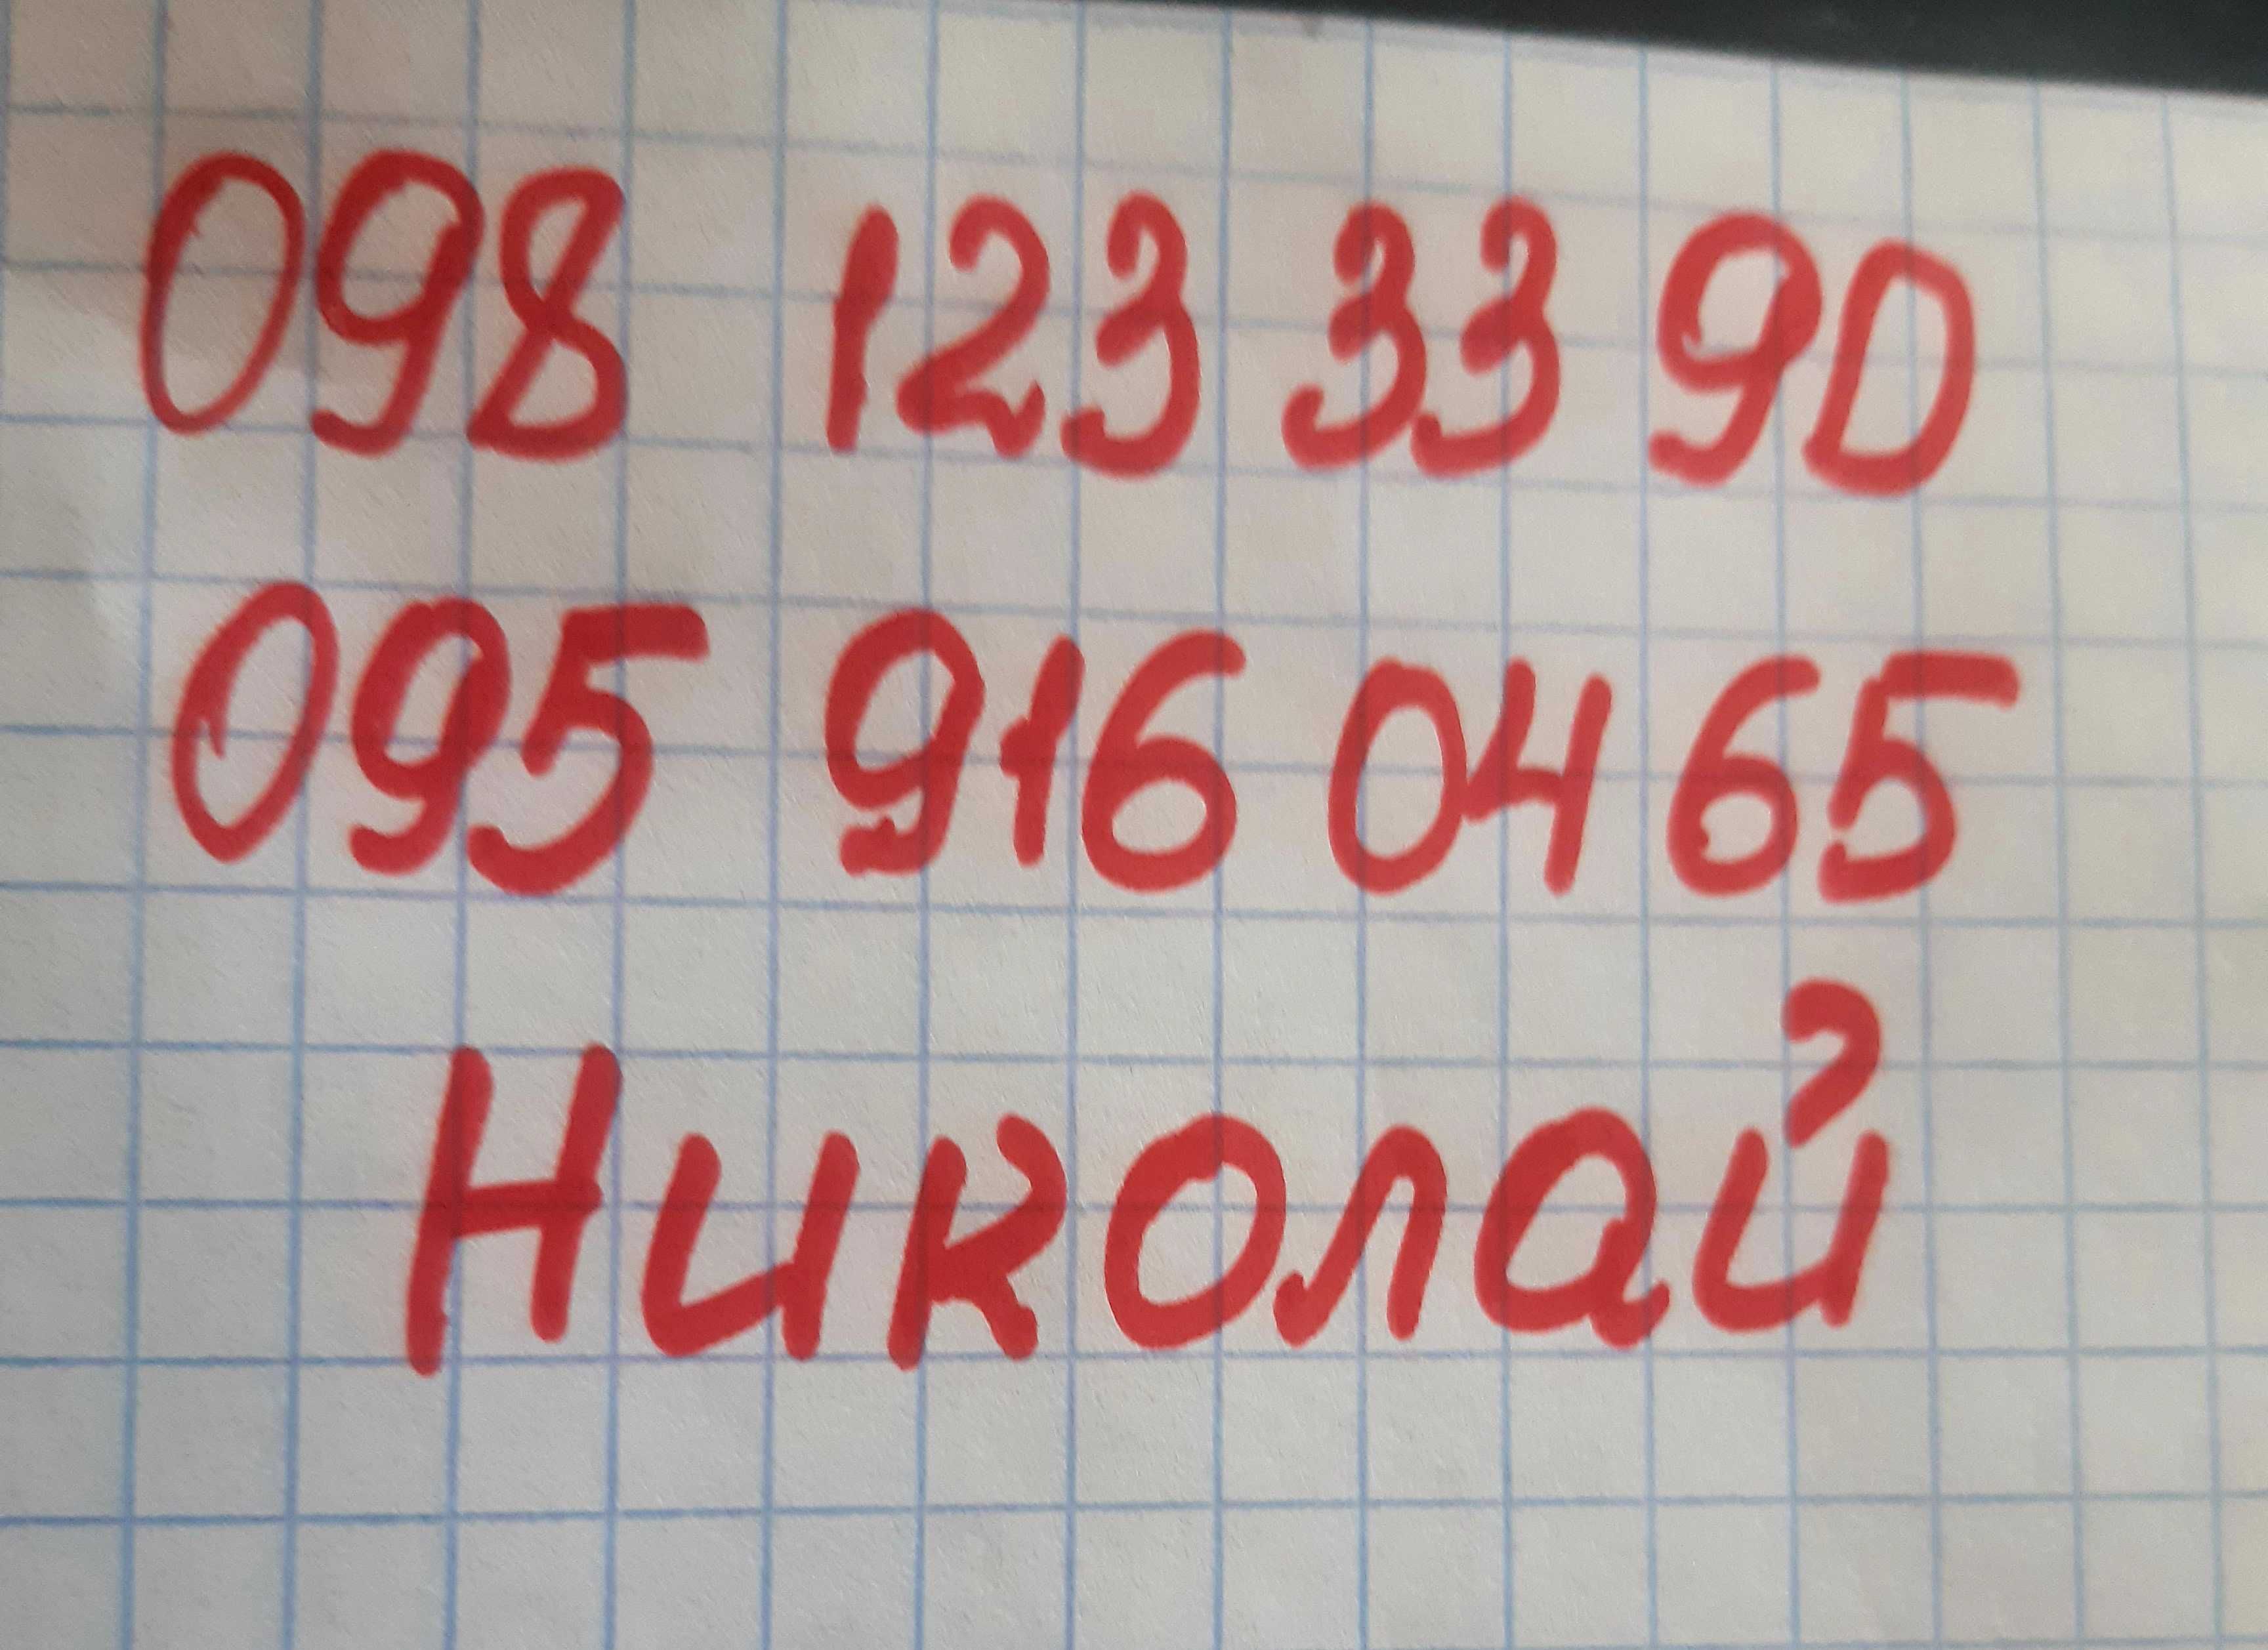 098 123 33 90
095 916 04 65
Николай